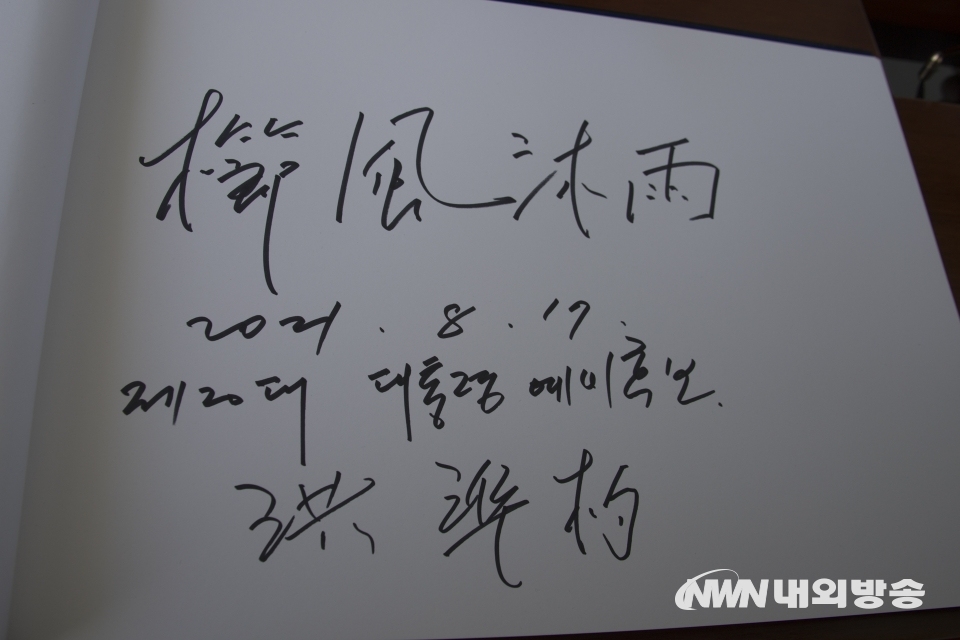 櫛風沐雨
2021. 8. 17.
제20대 대통령 예비후보.
洪準杓
NWN 내외방송